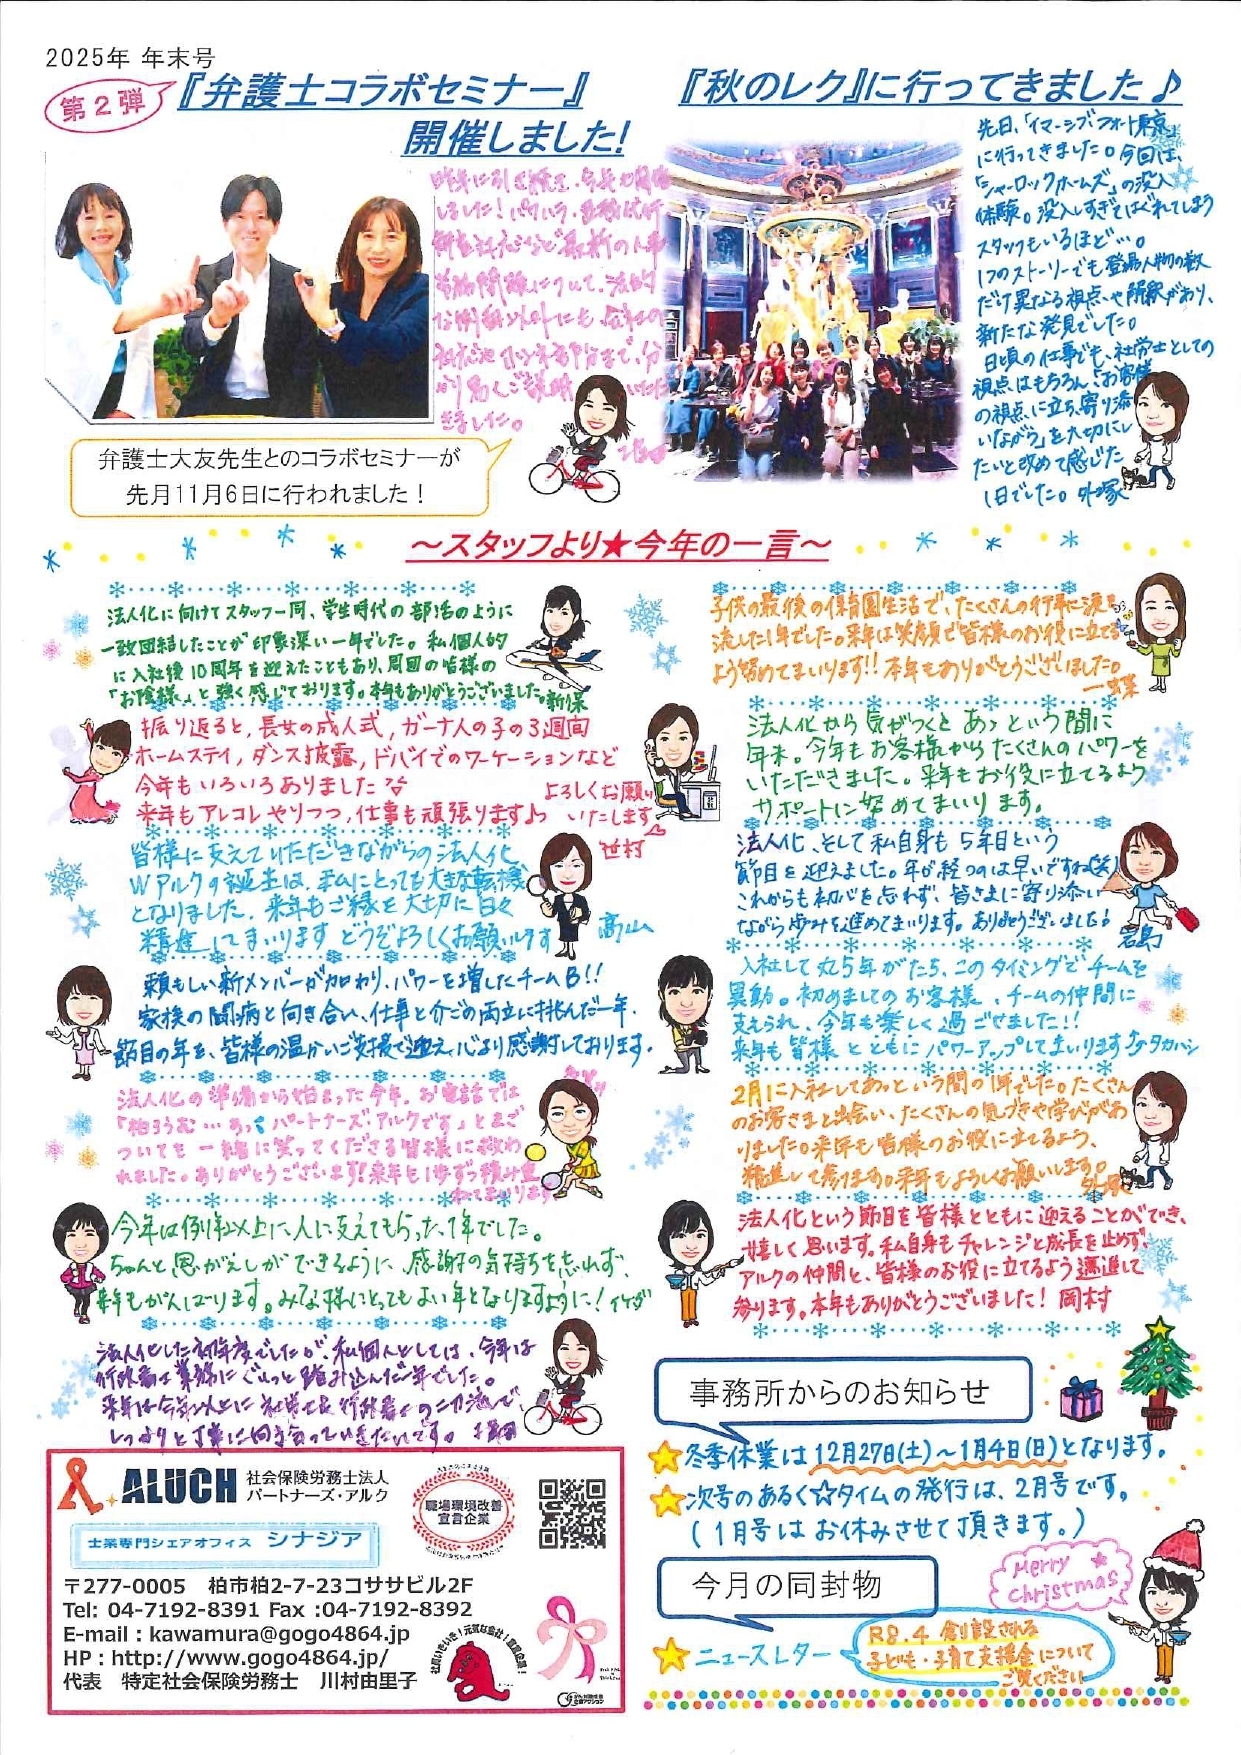 2025年 年末号
第2弾
『弁護士コラボセミナー』
開催しました!
昨年に引き続き、今年も開催
しました!パワハラ・
新たな など最新の人事
労務問題について、法的
な側面以外にも、会社の
まで、分
かり易くご説明いただ
きました。
弁護士大友先生とのコラボセミナーが
先月11月6日に行われました!
『秋のレク』に行ってきました♪
先日、「イマーシブフォート東京」
に行ってきました。今回は、
「シャーロックホームズ」の没入
体験。没入しすぎてはぐれてしまう
スタッフもいるほど…。
1つのストーリーでも登場人物の数
だけ異なる視点や解釈があり、
新たな発見でした。
日頃の仕事でも、社労士としての
視点はもちろん、「お客様
の視点に立ち、寄り添
いながら」を大切にし
たいと改めて感じた
1日でした。 外塚
～スタッフより★今年の一言～
法人化に向けてスタッフ一同、学生時代の部活のように
一致団結したことが印象深い一年でした。私個人的
に入社後10周年を迎えたこともあり、周囲の皆様の
「お陰様」と強く感じております。本年もありがとうございました。新保
振り返ると、長女の成人式、ガーナ人の子の3週間
ホームステイ、ダンス披露、ドバイでのワーケーションなど
今年もいろいろありました
来年もアレコレやりつつ、仕事も頑張ります♪
よろしくお願い
いたします
世村
皆様に支えていただきながらの法人化、
Wアルクの誕生は、私にとっても大きな転機
となりました。来年もご縁を大切に日々
精進してまいります どうぞよろしくお願いします
高山
頼もしい新メンバーが加わり、パワーを増したチームB!!
家族の闘病と向き合い、仕事と介ごの両立に挑んだ一年。
節目の年を、皆様の温かいご支援で迎え、心より感謝しております。
法人化の準備から始まった今年。お電話では
「柏ろうむ…あっ パートナーズ・アルクです」とまご
ついても一緒に笑ってくださる皆様に救わ
れました。ありがとうございます!来年も1歩ずつ積み重
ねてまいります
今年は例年以上に人に支えてもらった1年でした。
ちゃんと恩がえしができるように、感謝の気持ちを忘れず、
来年もがんばります。みな様にとってもよい年となりますように! イケダ
法人化した初年度でしたが、私個人としては、今年は
行政書士業務にぐぐっと踏み込んだ一年でした。
来年は今年以上に社労士と行政書士の二刀流で、
しっかりと丁寧に向き合っていきたいです。
子供の最後の保育園生活で、たくさんの行事に涙を
流した1年でした。来年は笑顔で皆様のお役に立てる
よう努めてまいります!!本年もありがとうございました。
法人化から気がつくとあっという間に
年末。今年もお客様からたくさんのパワーを
いただきました。来年もお役に立てるよう
サポートに努めてまいります。
法人化、そして私自身も5年目という
節目を迎えました。年が経つのは早いですね(笑)
これからも初心を忘れず、皆さまに寄り添い
ながら歩みを進めてまいります。ありがとうございました!
岩島
入社して丸5年がたち、このタイミングでチームを
異動。初めましてのお客様、チームの仲間に
支えられ、今年も楽しく過ごせました!!
来年も皆様とともにパワーアップしてまいります タカハシ
2月に入社してあっという間の1年でした。たくさん
のお客さまと出会い、たくさんの気づきや学びがあ
りました。来年も皆様のお役に立てるよう、
精進して参ります。来年もよろしくお願いします。
外塚
法人化という節目を皆様とともに迎えることができ、
嬉しく思います。私自身もチャレンジと成長を止めず、
アルクの仲間と、皆様のお役に立てるよう邁進して
参ります。本年もありがとうございました! 岡村
ALUCH 社会保険労務士法人
パートナーズ・アルク
職場環境改善
宣言企業
士業専門シェアオフィス シナジア
〒277-0005 柏市柏2-7-23コササビル2F
Tel: 04-7192-8391 Fax :04-7192-8392
E-mail : kawamura@gogo4864.jp
HP : http://www.gogo4864.jp/
代表 特定社会保険労務士 川村由里子
社員いきいき!元気な会社!宣言企業!
がん対策推進
企業アクション
事務所からのお知らせ
冬季休業は12月27日(土)～1月4日(日)となります。
次号のあるく☆タイムの発行は、2月号です。
(1月号はお休みさせて頂きます。)
今月の同封物
Merry
Christmas
ニュースレター
R8.4 創設される
子ども・子育て支援金について
ご覧ください